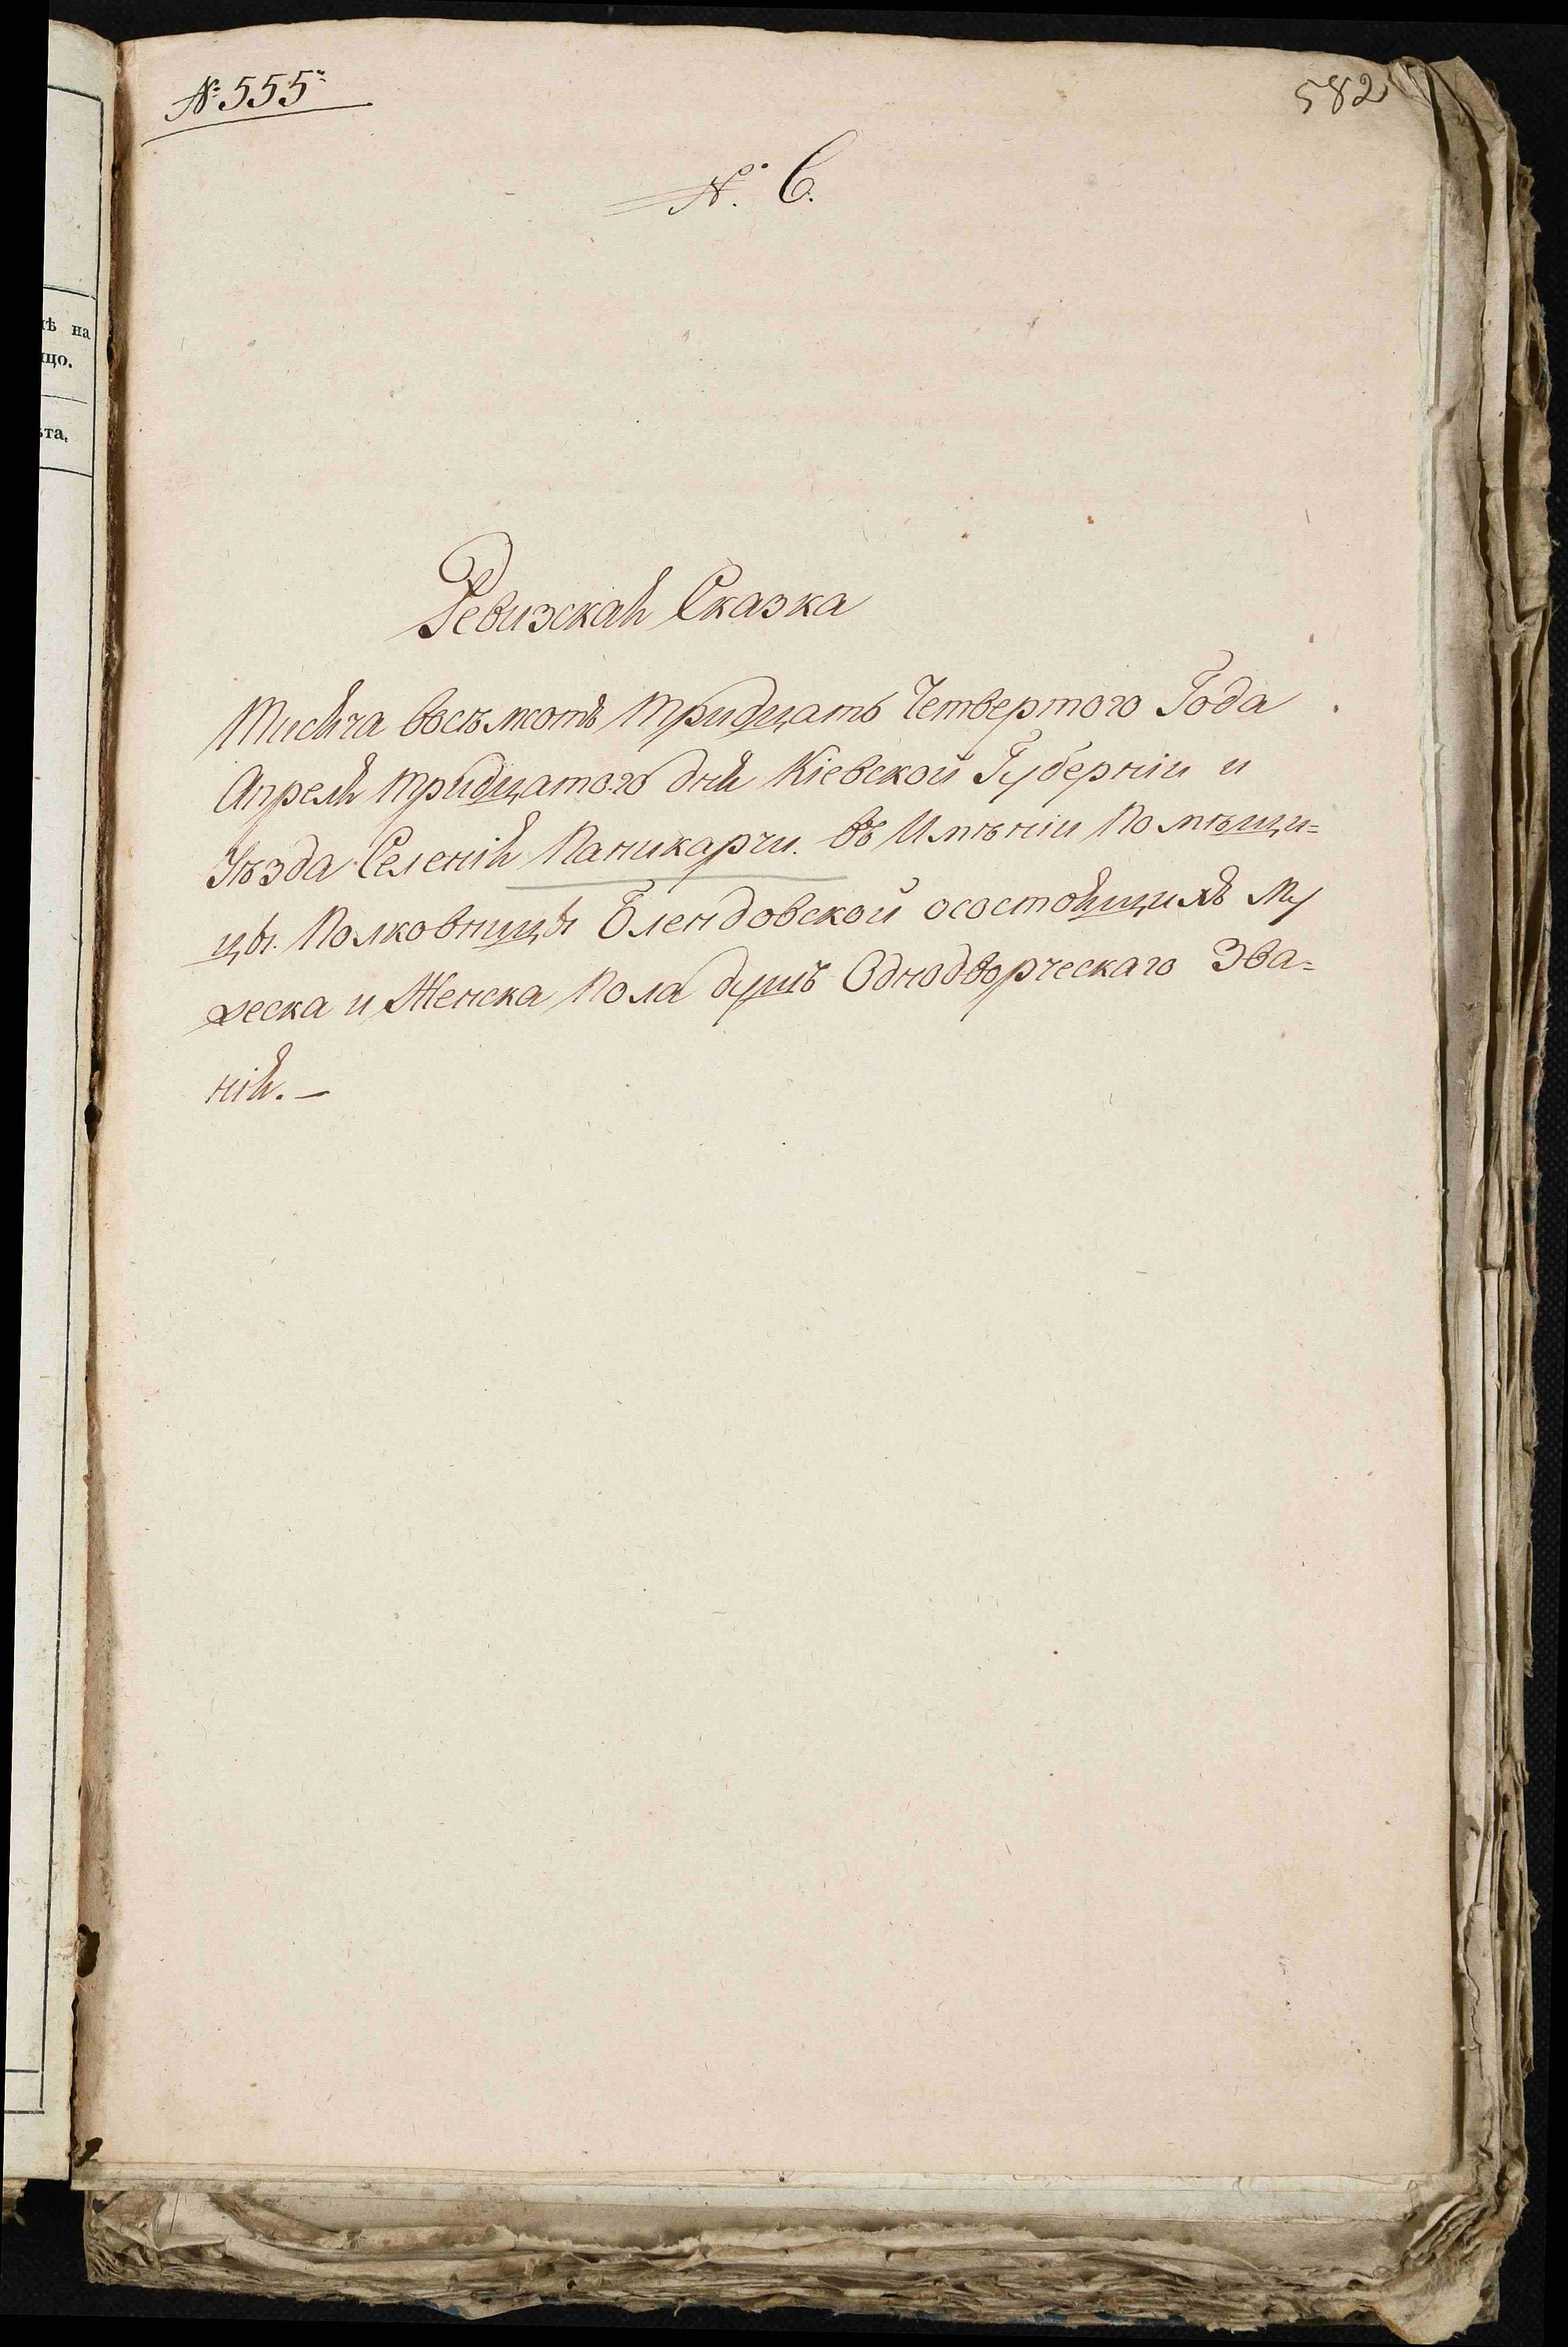 № 555
582
№. 6.
Ревизская Сказка
Тисяча восѣмсотъ тридцать Четвертого Года
Апреля тридцатого дня Кіевской Губерніи и
Уѣзда Селенія Паникарчи. въ Имѣніи Помѣщи=
цы. Полковницы Блендовской осостоящихъ Му
жеска и Женска пола душъ Однодворческаго Зва=
нія. —
ѣ на
цо.
ѣта.